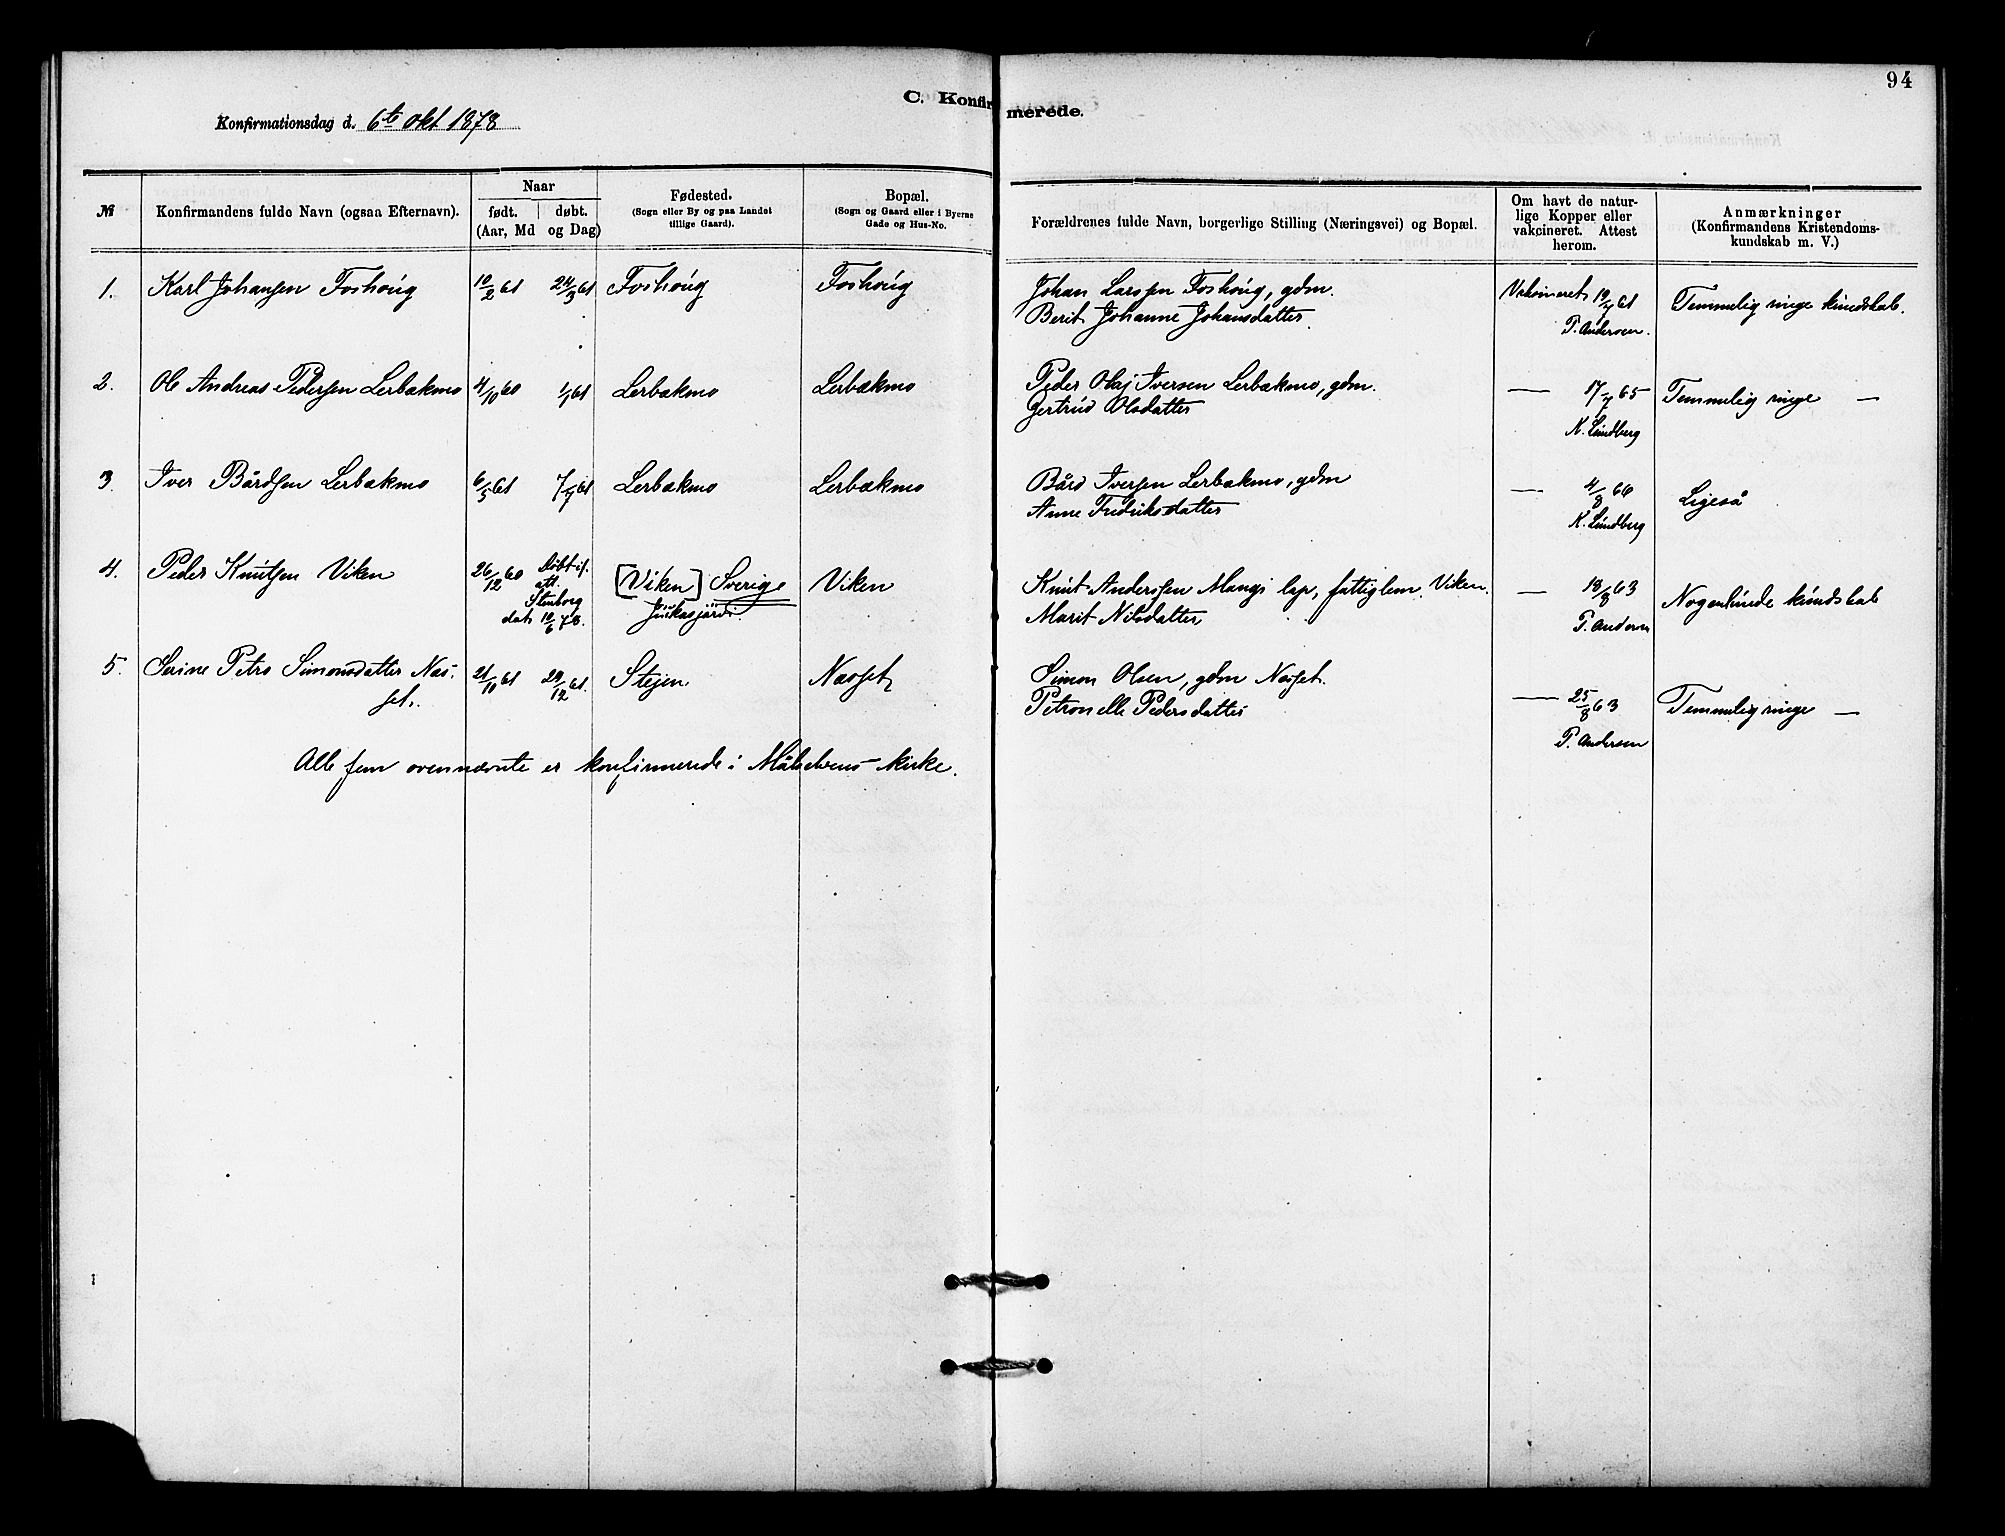 94
C. Konfirmerede.
Konfirmationsdag d. 6te Okt 1878
№
Konfirmandens fulde Navn (ogsaa Efternavn).
Naar
født. døbt.
(Aar, Md og Dag)
Fødested.
(Sogn eller By og paa Landet
tillige Gaard).
Bopæl.
(Sogn og Gaard eller i Byerne
Gade og Hus-No.
Forældrenes fulde Navn, borgerlige Stilling (Næringsvei) og Bopæl.
Om havt de natur-
lige Kopper eller
vakcineret. Attest
herom.
Anmærkninger
(Konfirmandens Kristendoms-
kundskab m. V.)
1. Karl Johansen Foshoug 10/2 61 24/3 61 Foshoug Foshoug Johan Larssen Foshoug, gdm. 61 Temmelig ringe kundskab.
Berit Johanne Johansdatter. P. Andersen.
2. Ole Andreas Pedersen Lerbakmo 4/10 60 61 Lerbakmo Lerbakmo Peder Olaj Iversen Lerbakmo, gdm. — 17/7 65 Temmelig ringe —
Gertrud Olsdatter K. Lundberg
3. Iver Bårdsen Lerbakmo 6/5 61 7/7 61 Lerbakmo Lerbakmo Bård Iversen Lerbakmo, gdm — 4/8 66 Ligeså
Anne Fredriksdatter K. Lundberg
4. Peder Knutsen Viken 26/12 60 Døbt if. [Viken] Sverige Viken Knut Anderssen Mangi lap, fattiglem Viken. — 18/8 63 Nogenlunde kundskab
att.
Stenborg
dat. 10/6 78. Marit Nilsdatter P. Andersen
5. Serine Petra Simonsdatter Næs- 21/11 61 29/12 61. Stejen Næsset Simon Olsen, gdm Næsset. — 25/8 63 Temmelig ringe —
set. Petronelle Pedersdatter P. Andersen
Alle fem ovennævnte er konfirmerede i Målselvens kirke.